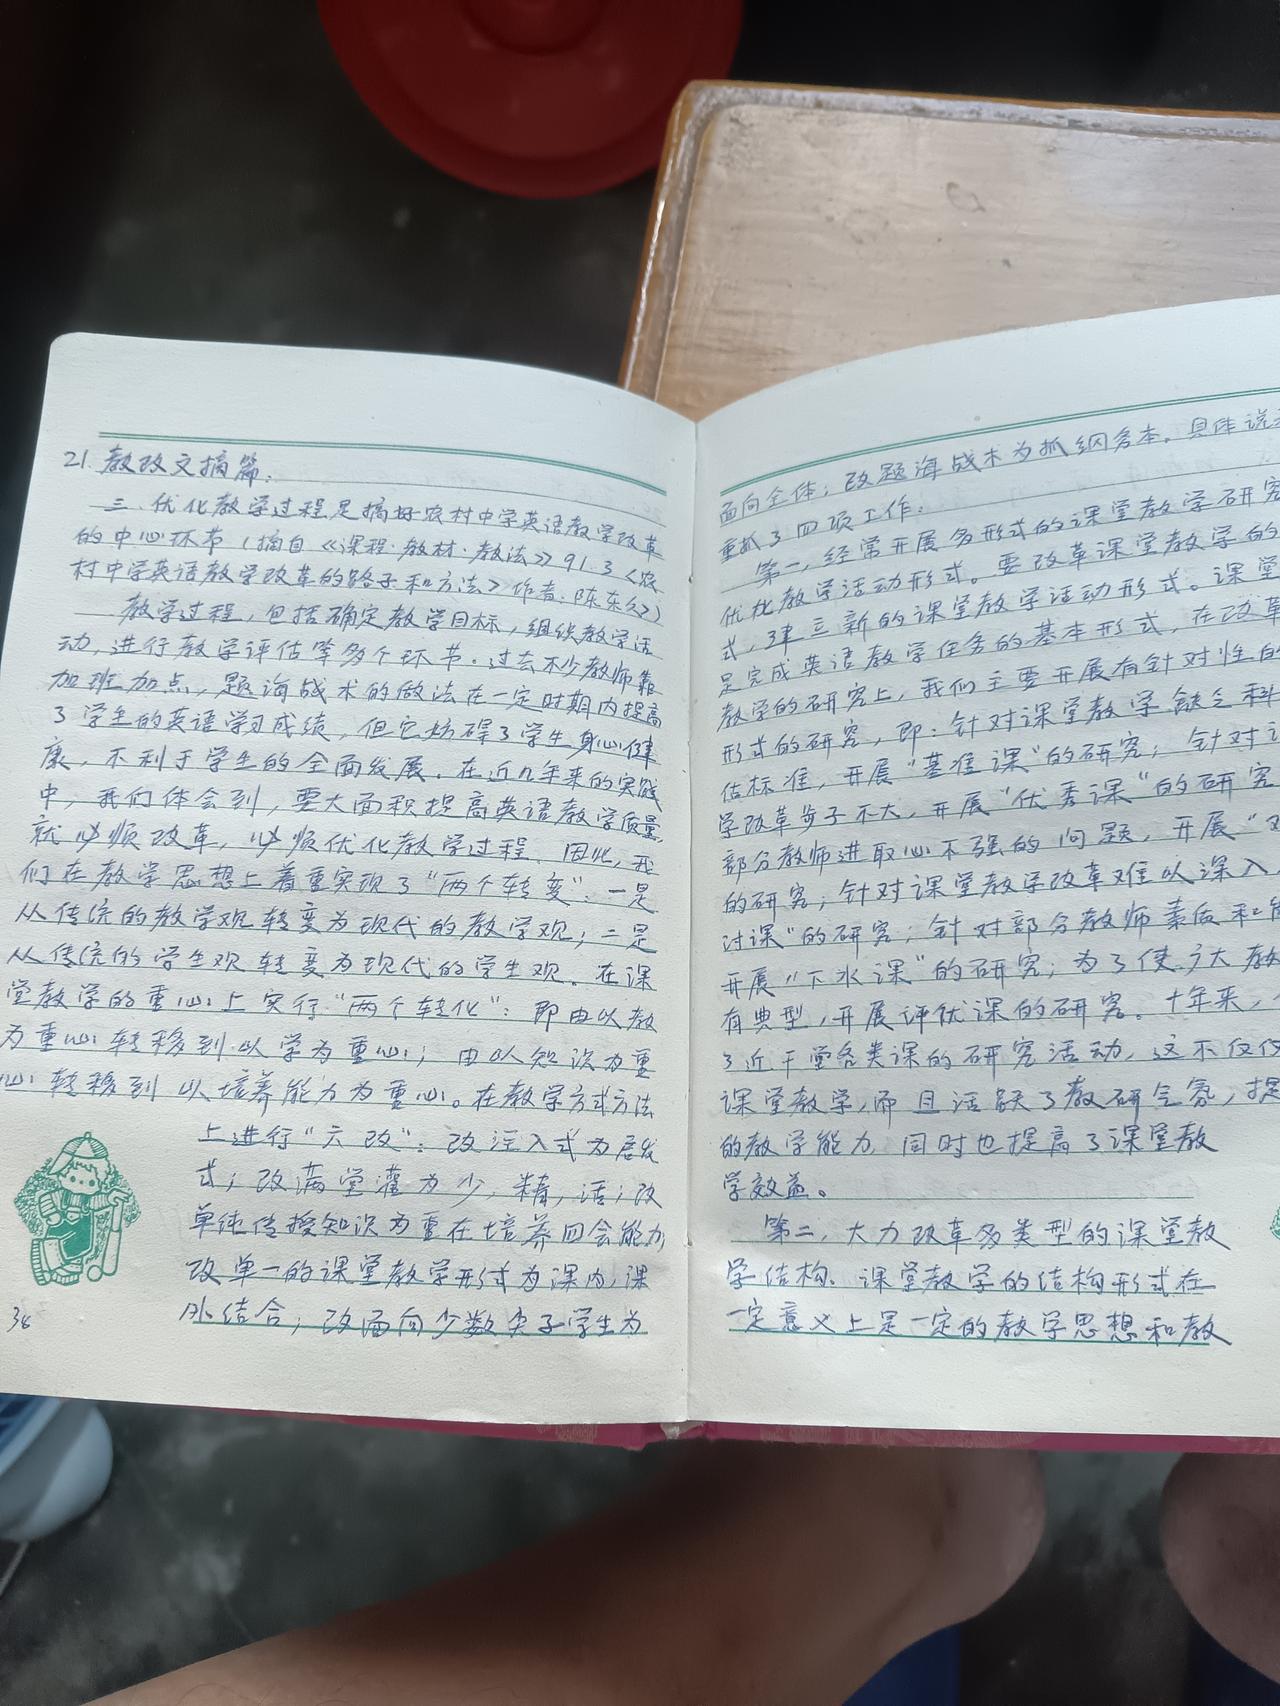 21. 教改文摘篇：
三. 优化教学过程是搞好农村中学英语教学改革
的中心环节（摘自《课程·教材·教法》91.3《农
村中学英语教学改革的路子和方法》作者：陈东久）
教学过程，包括确定教学目标，组织教学活
动，进行教学评估等多个环节。过去不少教师靠
加班加点，题海战术的做法在一定时期内提高
了学生的英语学习成绩，但它妨碍了学生身心健
康，不利于学生的全面发展。在近几年来的实践
中，我们体会到，要大面积提高英语教学质量，
就必须改革，必须优化教学过程。因此，我
们在教学思想上着重实现了“两个转变”：一是
从传统的教学观转变为现代的教学观；二是
从传统的学生观转变为现代的学生观。在课
堂教学的重心上实行“两个转化”：即由以教
为重心转移到以学为重心；由以知识为重
心转移到以培养能力为重心。在教学方式方法
上进行“六改”：改注入式为启发
式；改满堂灌为少，精，活；改
单纯传授知识为重在培养四会能力；
改单一的课堂教学形式为课内，课
外结合；改面向少数尖子学生为
36
面向全体；改题海战术为抓纲务本。具体说
重抓了四项工作：
第一，经常开展多形式的课堂教学研究
优化教学活动形式。要改革课堂教学的
式，建立新的课堂教学活动形式。课堂
是完成英语教学任务的基本形式，在改革
教学的研究上，我们主要开展有针对性的
形式的研究，即：针对课堂教学缺乏科
估标准，开展“基准课”的研究；针对
学改革步子不大，开展“优秀课”的研究
部分教师进取心不强的问题，开展“
的研究；针对课堂教学改革难以深入，
讨课”的研究；针对部分教师素质和
开展“下水课”的研究；为了使广大教
有典型，开展评优课的研究。十年来，
了近千堂各类课的研究活动，这不仅
课堂教学，而且活跃了教研气氛，提
的教学能力，同时也提高了课堂教
学效益。
第二，大力改革多类型的课堂教
学结构。课堂教学的结构形式在
一定意义上是一定的教学思想和教